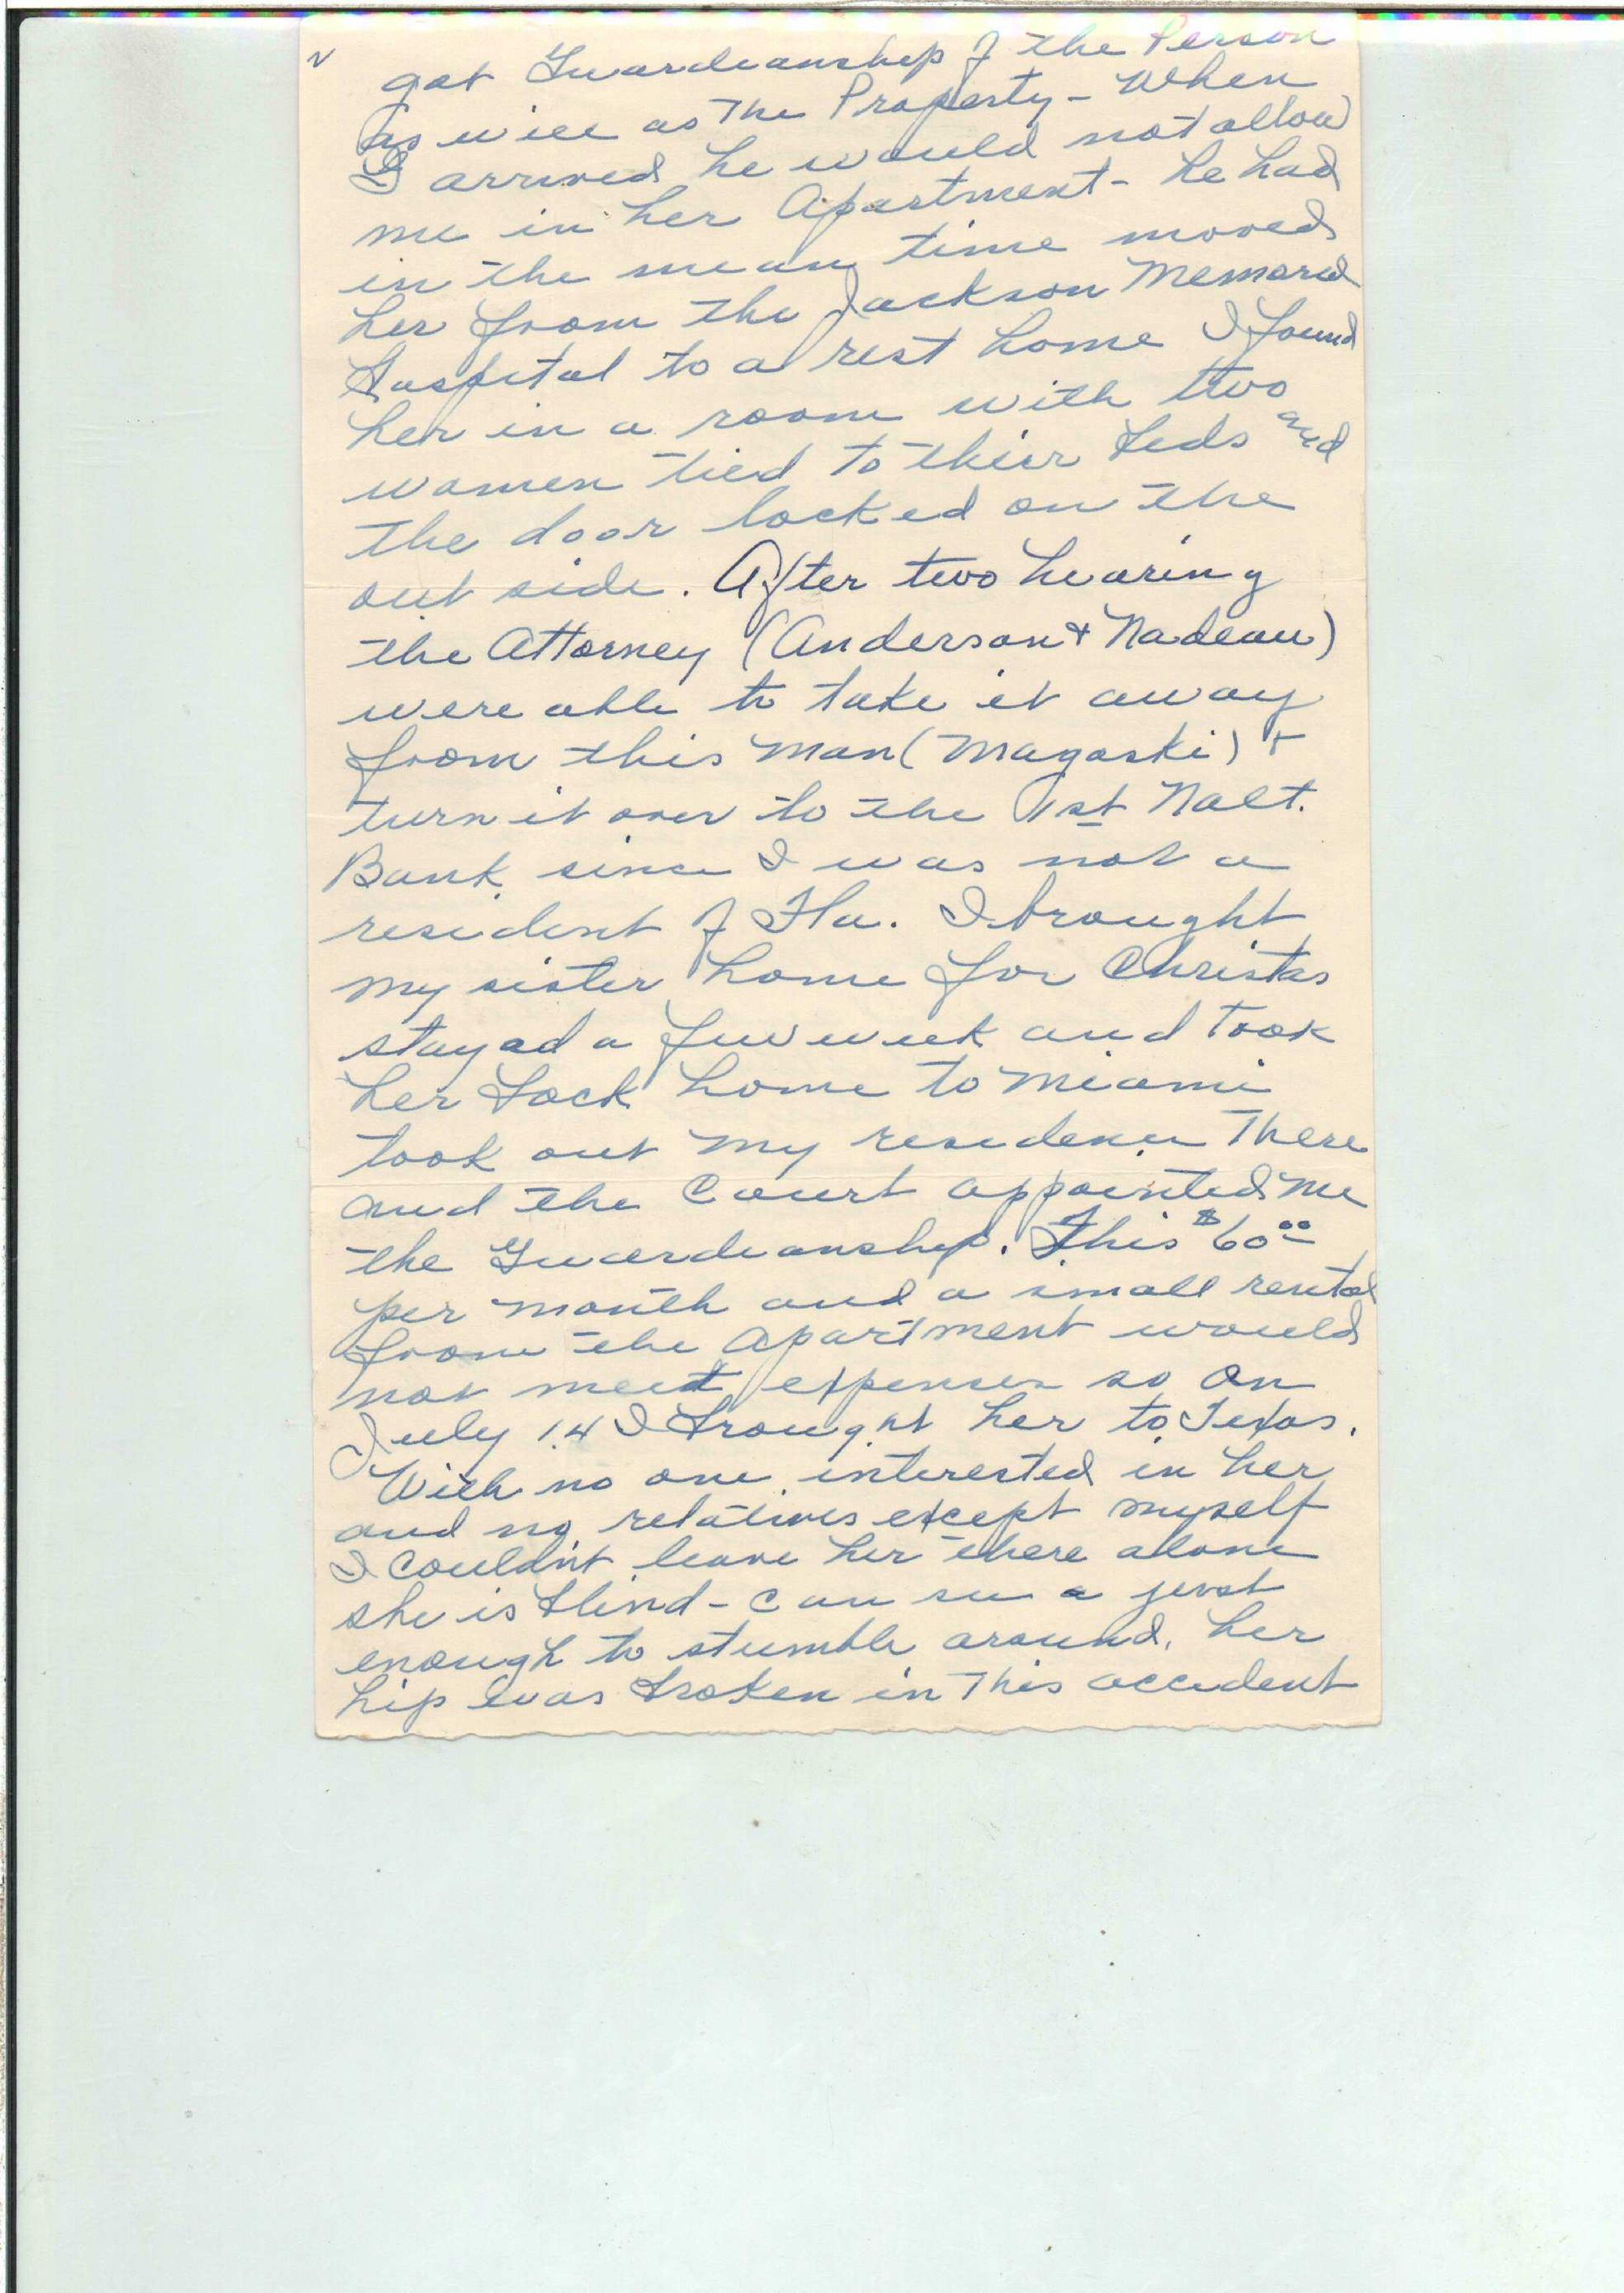 got Guardianship of the Person
as well as The Property - When
I arrived he would not allow
me in her Apartment - he had
in the mean time moved
her from the Jackson Memorial
Hospital to a rest home I found
her in a room with two
women tied to their beds and
the door locked on the
out side. After two hearing
the Attorney (Anderson + Nadeau)
were able to take it away
from this man (Magaski) +
turn it over to the 1st Nalt.
Bank since I was not a
resident of Fla. I brought
my sister home for Christas
stayed a few week and took
her back home to Miami
took out my residence There
and the Court appointed me
the Guardianship. This $60.00
per month and a small rental
from the apartment would
not meet expenses so on
July 14 I brought her to Texas.
With no one interested in her
and no relatives except myself
I couldn't leave her there alone
she is blind - can see a just
enough to stumble around. her
hip was broken in This accident